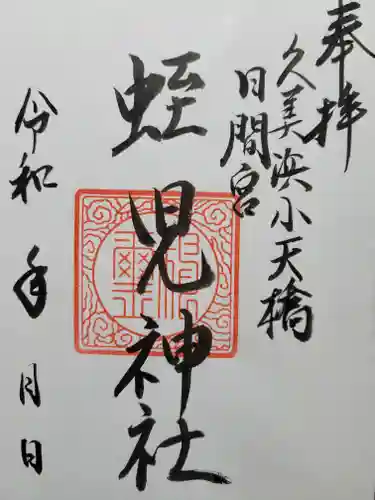 奉拝
久美浜小天橋
日間宮
蛭児神社
令和 年 月 日